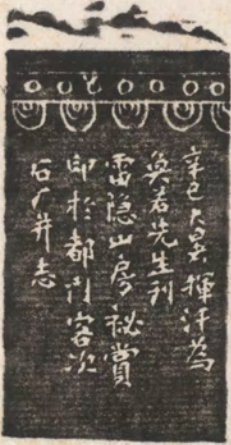 辛巳大暑揮汗為
奐若先生刊
雷隐山房秘賞
印於都門客次
石广并志